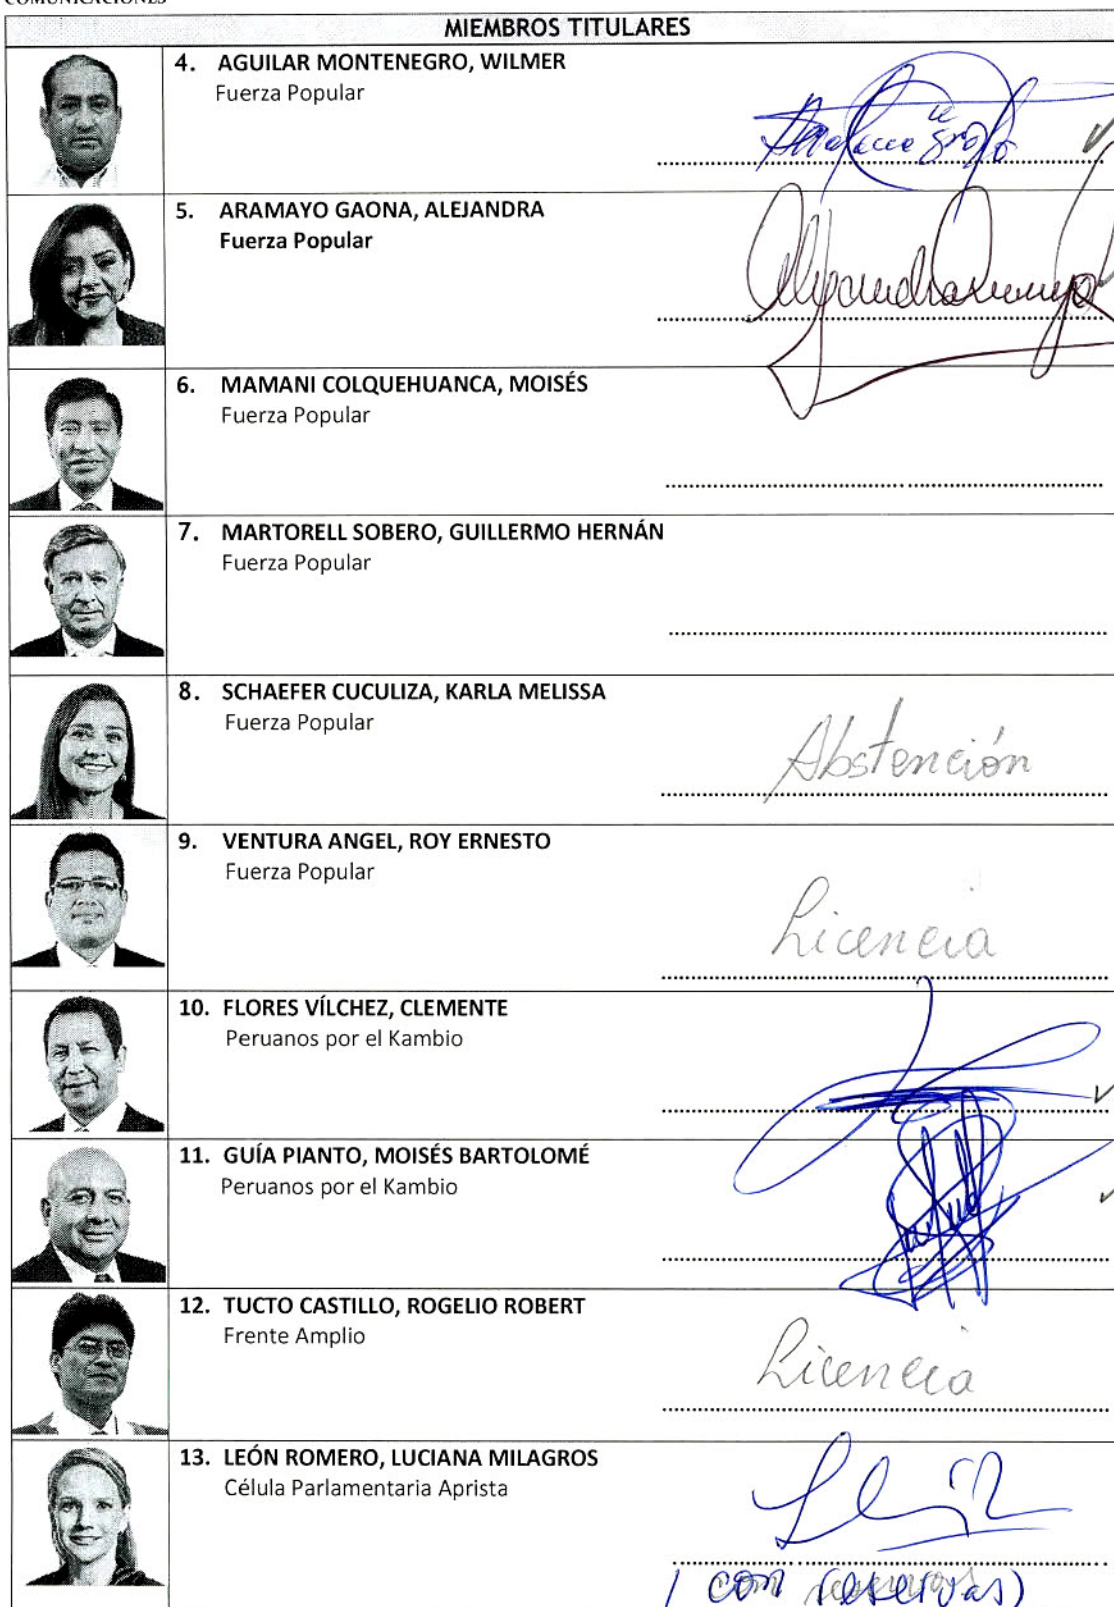 COMUNICACIONES
MIEMBROS TITULARES
4. AGUILAR MONTENEGRO, WILMER
Fuerza Popular
5. ARAMAYO GAONA, ALEJANDRA
Fuerza Popular
6. MAMANI COLQUEHUANCA, MOISÉS
Fuerza Popular
7. MARTORELL SOBERO, GUILLERMO HERNÁN
Fuerza Popular
8. SCHAEFER CUCULIZA, KARLA MELISSA
Fuerza Popular
Abstención
9. VENTURA ANGEL, ROY ERNESTO
Fuerza Popular
Licencia
10. FLORES VÍLCHEZ, CLEMENTE
Peruanos por el Kambio
11. GUÍA PIANTO, MOISÉS BARTOLOMÉ
Peruanos por el Kambio
12. TUCTO CASTILLO, ROGELIO ROBERT
Frente Amplio
Licencia
13. LEÓN ROMERO, LUCIANA MILAGROS
Célula Parlamentaria Aprista
(con reservas)